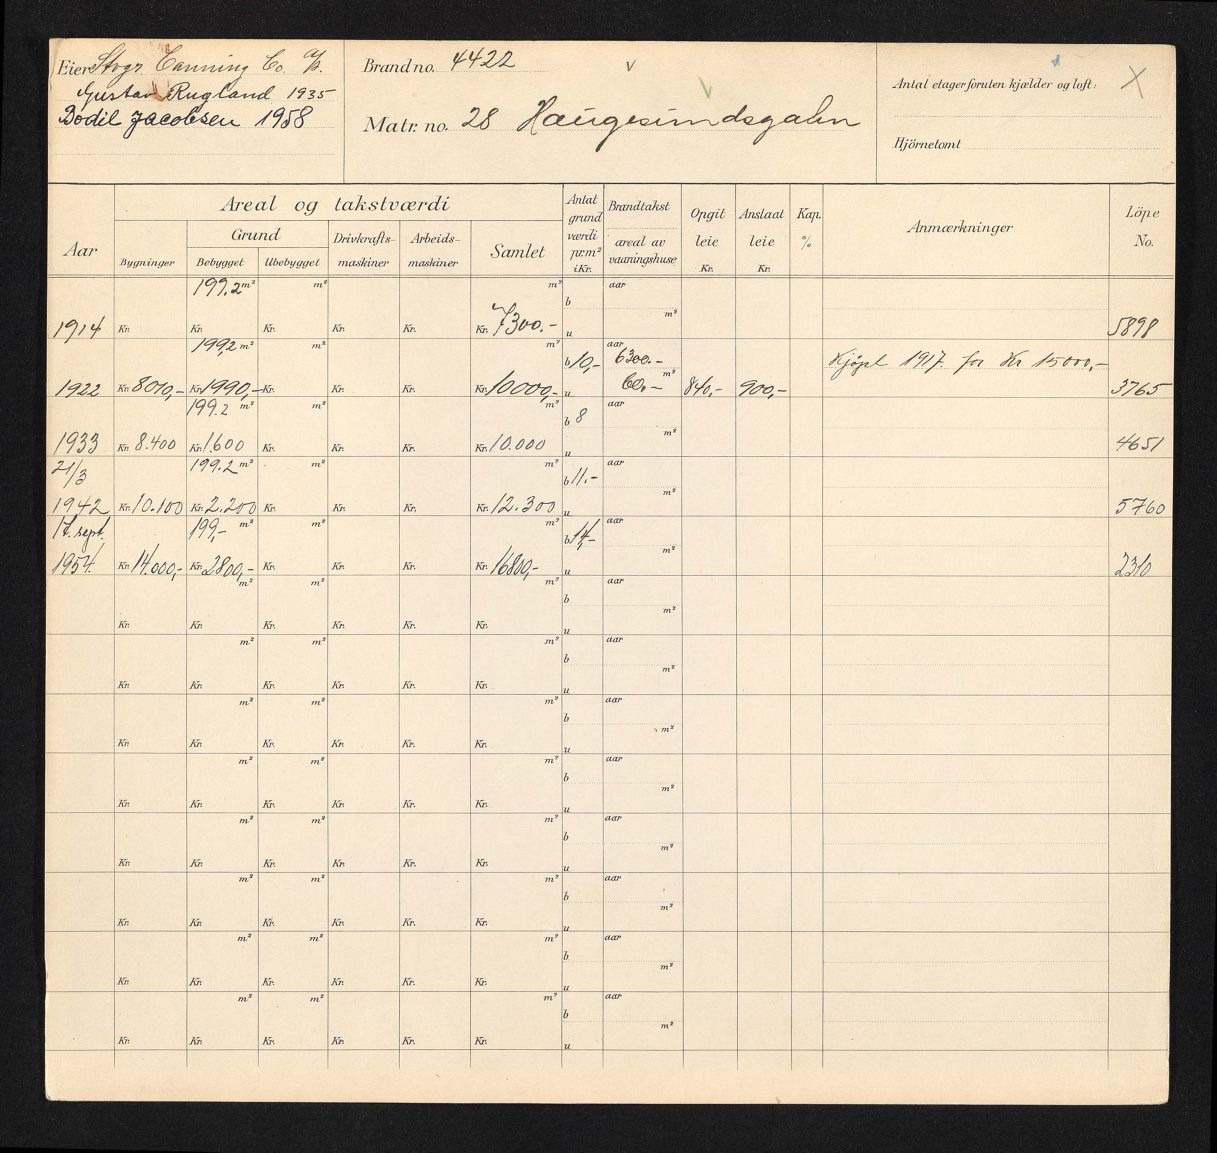 Eier Stvgr. Canning Co. A/S.
Gustav Rugland 1935
Bodil Jacobsen 1958
Brand no. 4422
v
Matr. no. 28 Haugesundsgaten
Antal etager foruten kjælder og loft: X
Hjörnetomt
Aar
Areal og takstværdi
Grund
Bygninger
Bebygget
Ubebygget
Drivkrafts-maskiner
Arbeids-maskiner
Samlet
Antat grund værdi pr. m² i Kr.
Brandtakst
areal av vaaningshuse
Opgit leie Kr.
Anslaat leie Kr.
Kap. %
Anmærkninger
Löpe No.
199.2 m² m² m² b aar
m²
1914 Kr. Kr. Kr. Kr. Kr. Kr. 7300.- u 5898
199,2 m² m² m² b 10,- aar 6300.- Kjöpt 1917. for Kr 15000,-
m²
1922 Kr. 8010,- Kr. 1990,- Kr. Kr. Kr. Kr. 10000,- u 60.- 840,- 900,- 3765
199.2 m² m² m² b 8 aar
m²
1933 Kr. 8.400 Kr. 1.600 Kr. Kr. Kr. Kr. 10.000 u 4651
21/3 199.2 m² m² m² b 11.- aar
m²
1942 Kr. 10.100 Kr. 2.200 Kr. Kr. Kr. Kr. 12.300 u 5760
17. sept. 199,- m² m² m² b 14,- aar
m²
1954. Kr. 14.000,- Kr. 2800,- Kr. Kr. Kr. Kr. 16800,- u 2310
m² m² m² b aar
m²
Kr. Kr. Kr. Kr. Kr. Kr. u
m² m² m² b aar
m²
Kr. Kr. Kr. Kr. Kr. Kr. u
m² m² m² b aar
m²
Kr. Kr. Kr. Kr. Kr. Kr. u
m² m² m² b aar
m²
Kr. Kr. Kr. Kr. Kr. Kr. u
m² m² m² b aar
m²
Kr. Kr. Kr. Kr. Kr. Kr. u
m² m² m² b aar
m²
Kr. Kr. Kr. Kr. Kr. Kr. u
m² m² m² b aar
m²
Kr. Kr. Kr. Kr. Kr. Kr. u
m² m² m² b aar
m²
Kr. Kr. Kr. Kr. Kr. Kr. u